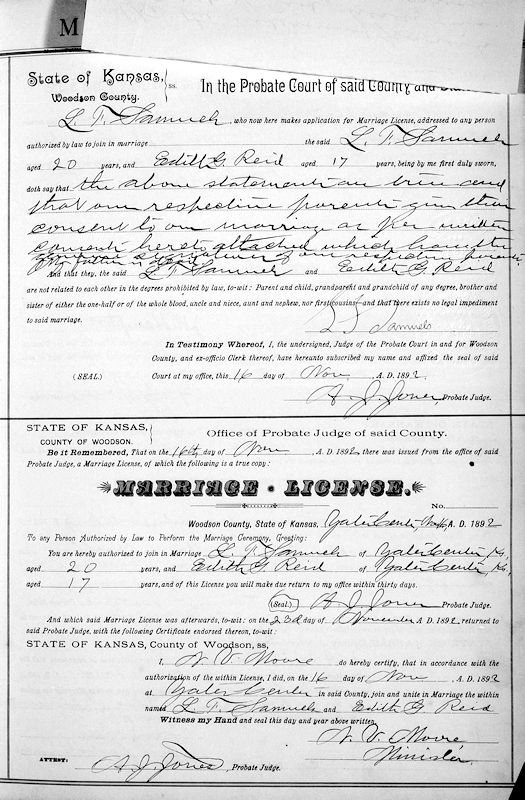 M
State of Kansas, } ss. In the Probate Court of said County and
Woodson County.
L. F. Samuels, who now here makes application for Marriage License, addressed to any person
authorized by law to join in marriage the said L. F. Samuels
aged 20 years, and Edith G. Reid aged 17 years, being by me first duly sworn,
doth say that the above statements are true and
that our respective parents give their
consent to our marriage as per written
consent hereto attached which
signatures of our respective parents
And that they, the said L. F. Samuels and Edith G. Reid
are not related to each other in the degrees prohibited by law, to-wit: Parent and child, grandparent and grandchild of any degree, brother and
sister of either the one-half or of the whole blood, uncle and niece, aunt and nephew, nor first cousins, and that there exists no legal impediment
to said marriage.
L F Samuels
In Testimony Whereof, I, the undersigned, Judge of the Probate Court in and for Woodson
County, and ex-officio Clerk thereof, have hereunto subscribed my name and affixed the seal of said
(SEAL.) Court at my office, this 16 day of Nov, A. D. 1892.
A. J. Jones, Probate Judge.
STATE OF KANSAS, } Office of Probate Judge of said County.
COUNTY OF WOODSON.
Be it Remembered, That on the 16th day of Nov, A. D. 1892 there was issued from the office of said
Probate Judge, a Marriage License, of which the following is a true copy:
MARRIAGE LICENSE.
No.
Woodson County, State of Kansas, Yates Center, Nov 16, A. D. 1892
To any Person Authorized by Law to Perform the Marriage Ceremony, Greeting:
You are hereby authorized to join in Marriage L. F. Samuels of Yates Center, Ks,
aged 20 years, and Edith G Reid of Yates Center, Ks,
aged 17 years, and of this License you will make due return to my office within thirty days.
(Seal.) A. J. Jones Probate Judge.
And which said Marriage License was afterwards, to-wit: on the 23d day of November A. D. 1892 returned to
said Probate Judge, with the following Certificate endorsed thereon, to-wit:
STATE OF KANSAS, County of Woodson, ss,
I, W. V. Moore do hereby certify, that in accordance with the
authorization of the within License, I did, on the 16 day of Nov, A. D. 1892
at Yates Center in said County, join and unite in Marriage the within
named L. F. Samuels and Edith G Reid
Witness my Hand and seal this day and year above written.
W. V. Moore
Minister
ATTEST: A. J. Jones, Probate Judge.